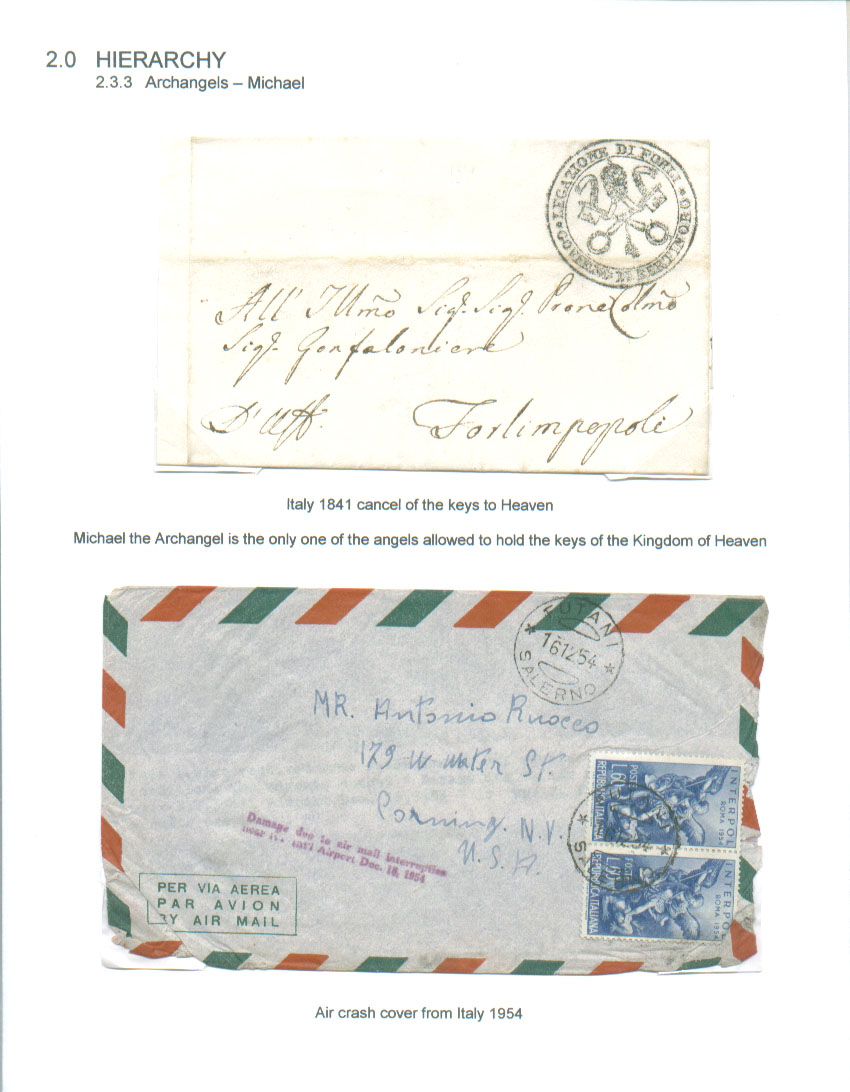 2.0 HIERARCHY
2.3.3 Archangels – Michael
LEGAZIONE DI FORLI
GOVERNO DI BERTINORO
All' Illmo Sig. Sig. Prone Colmo
Sig. Gonfaloniere
D'Uff. Forlimpopoli
Italy 1841 cancel of the keys to Heaven
Michael the Archangel is the only one of the angels allowed to hold the keys of the Kingdom of Heaven
16.12.54
SALERNO
MR. Antonio Ruocco
179 W water St.
Corning, N.Y.
U.S.A.
Damage due to air mail interruption
near N.Y. Int'l Airport Dec. 18, 1954
PER VIA AEREA
PAR AVION
BY AIR MAIL
INTERPOL
ROMA 1954
POSTE L.60
REPUBBLICA ITALIANA
INTERPOL
ROMA 1954
POSTE L.60
REPUBBLICA ITALIANA
Air crash cover from Italy 1954